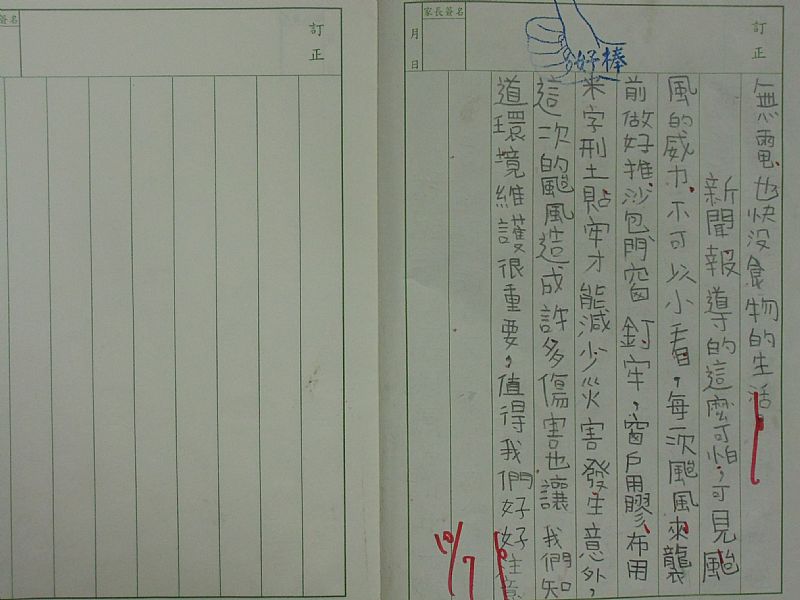 訂正
家長簽名
月 日
好棒
無電也快没食物的生活。
新聞報導的這麼可怕，可見颱
風的威力不可以小看，每一次颱風來襲
前做好推沙包門窗釘牢，窗戶用膠布用
米字刑土貼牢才能減少災害發生意外，
這次的颱風造成許多傷害也讓我們知
道環境維護很重要，值得我們好好注意
10/7
簽名
訂正